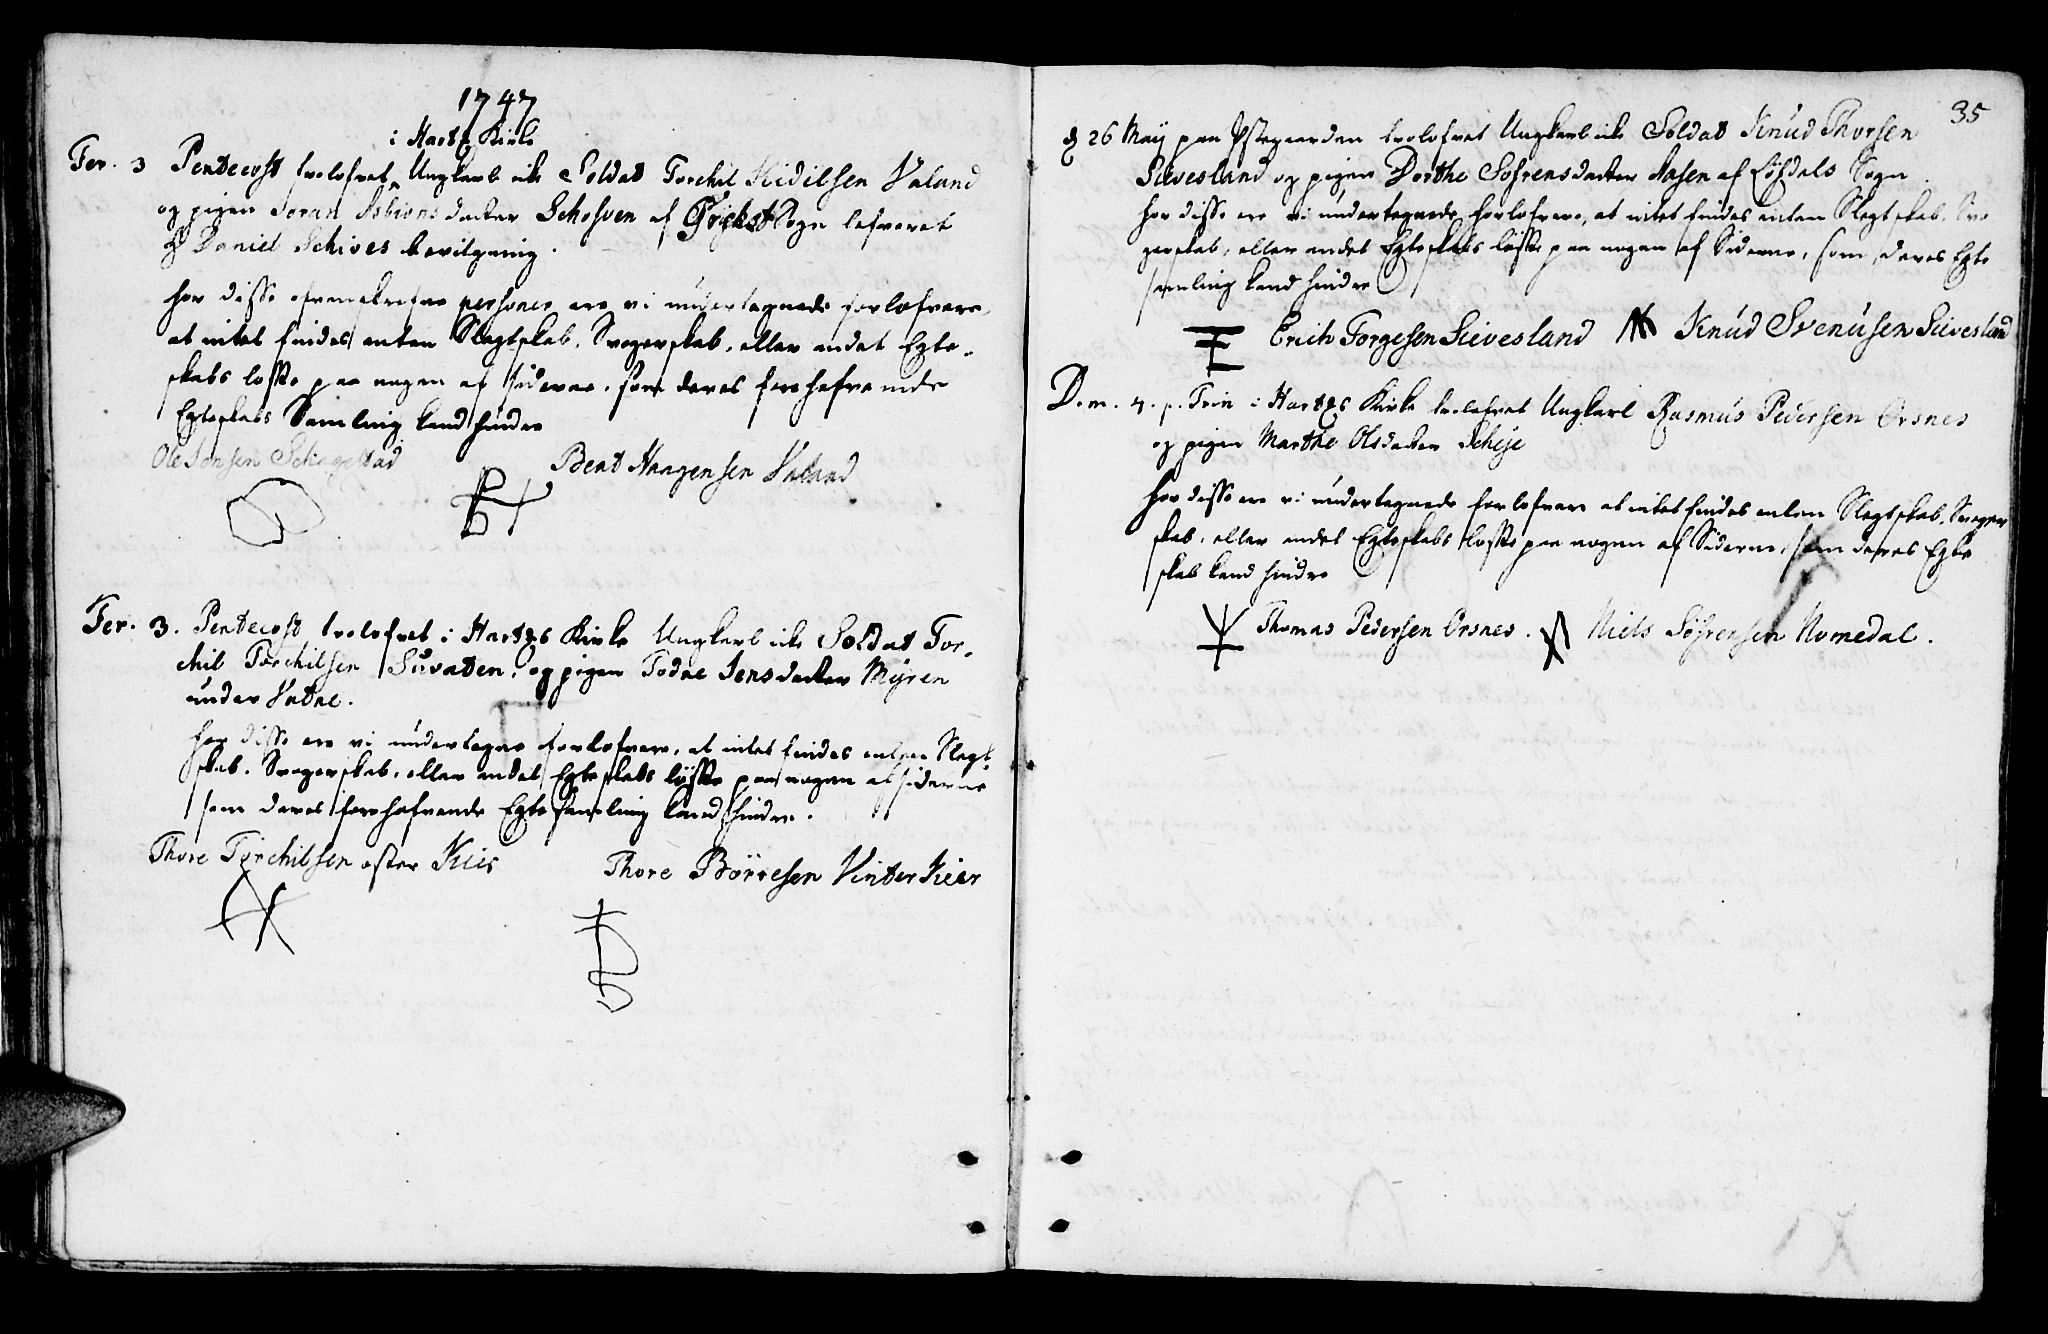 1747
i Hartz Kirke
Fer. 3 Pentecost trolofvet Ungkarl icke Soldat Torchil Kidilsen Valand
og pigen Joran Asbiorns datter Schofven af Sogn lefveret
H Daniel Schives bevilgning.
for disse ere vi undertegnede forlofvere,
at intet findes enten Slegtskab, Svogerskab, eller andet Egte-
skabs løfte paa nogen af siderne, som deres forehafvende
Egteskabs Samling kand hindre
Ole Jensen
Bent Haagensen Valand
Fer. 3. Pentecost trolofvet i Hartzs Kirke Ungkarl icke Soldat Tor-
chil Torchilsen Suvaten, og pigen Todne Jensdatter Myren
under Vatne.
for disse ere vi undertegne forlofvere, at intet findes enten Slegt-
skab, Svogerskab, eller andet Egteskabs løfte paa nogen af siderne
som deres forehafvende Egte samling kand hindre.
Thore Torchilsen øster Kier
Thore Børresen Vinterkier
35
d 26 Maij paa Østegaarden trolofvet Ungkarl icke Soldat Knud Thorsen
Sievesland og pigen Dorthe Sofrensdatter Aasen af Løfdals Sogn.
for disse ere vi undertegnede forlofvere, at intet findes enten Slegtskab, Svo
gerskab, eller andet Egteskabs løfte paa nogen af Siderne, som deres Egte
samling kand hindre
Erich Torgesen Sievesland Knud Svenusen Sievesland
D.m. 4. p. Trin i Hartzs Kirke trolofvet Ungkarl Rasmus Pedersen Orsnes
og pigen Marthe Olsdatter Scheje
for disse ere vi undertegnede forlofvere at intet findes enten Slegtskab, Svoger
skab, eller andet Egteskabs løfte paa nogen af Siderne, som deres Egte
skab kand hindre
Thomas Pedersen Orsnes. Niels Søfrensen Nomedal.